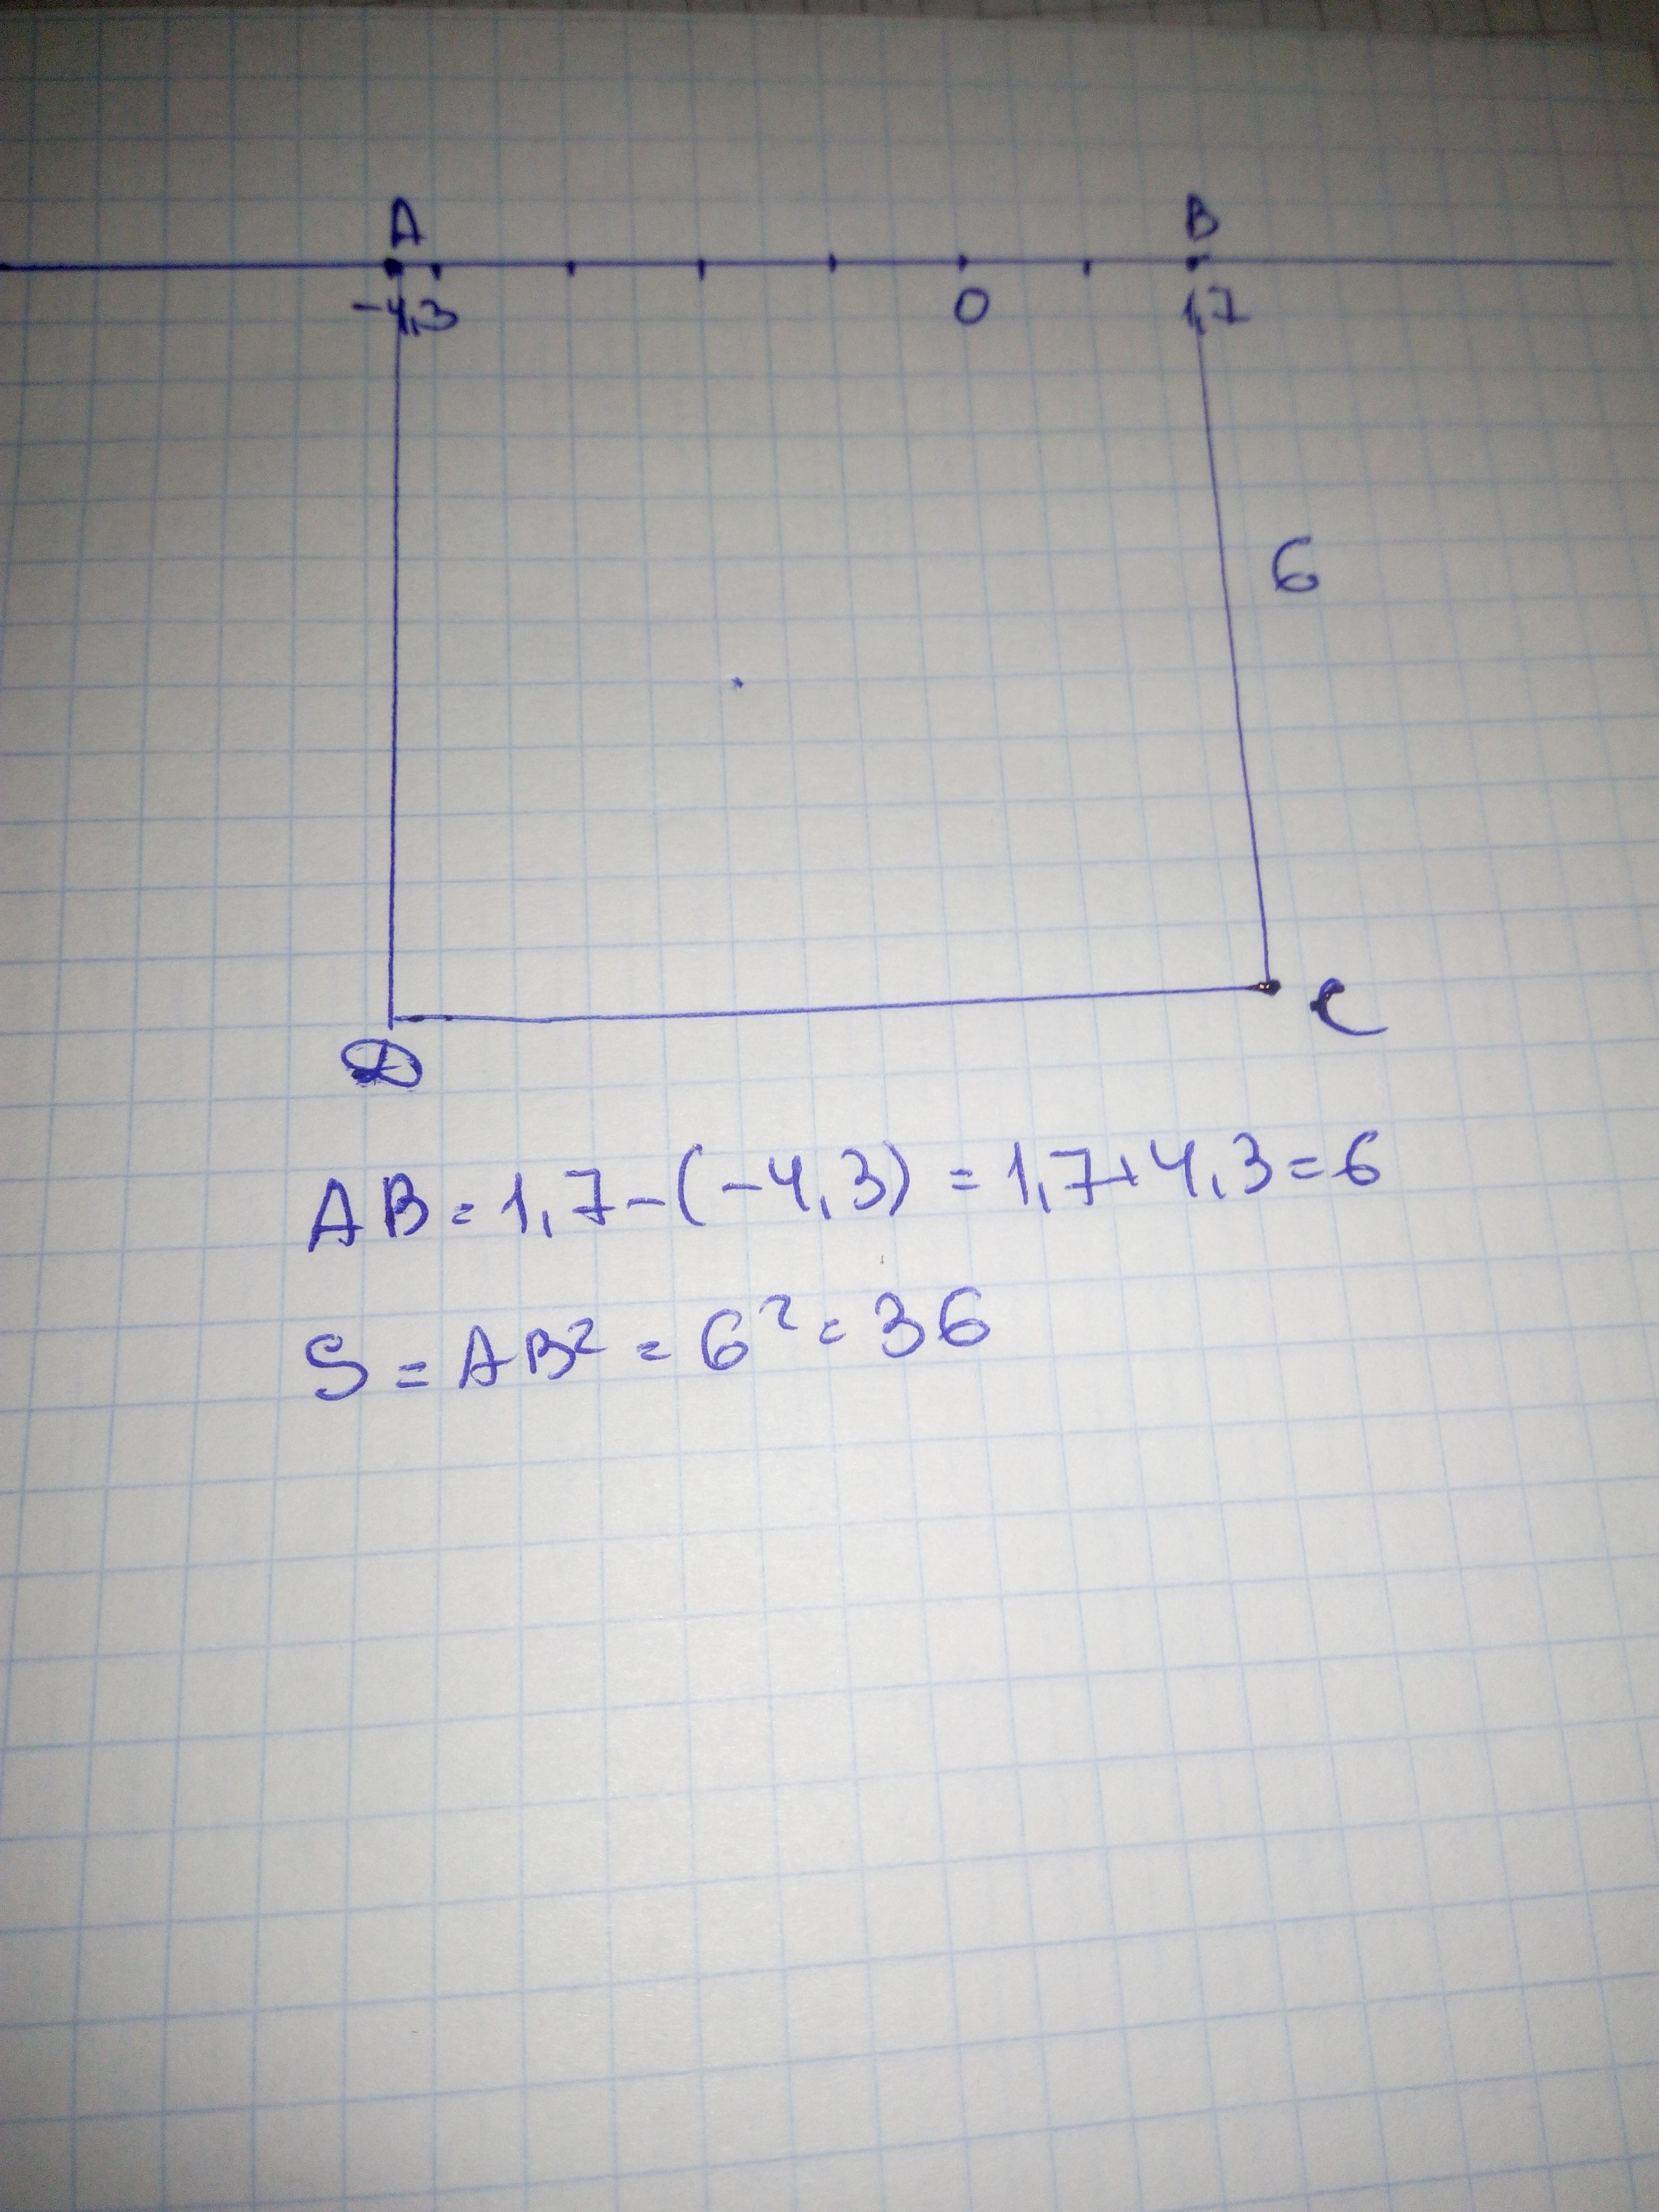 A B
-4,3 0 1,7
6
D C
AB = 1,7 - (-4,3) = 1,7 + 4,3 = 6
S = AB² = 6² = 36